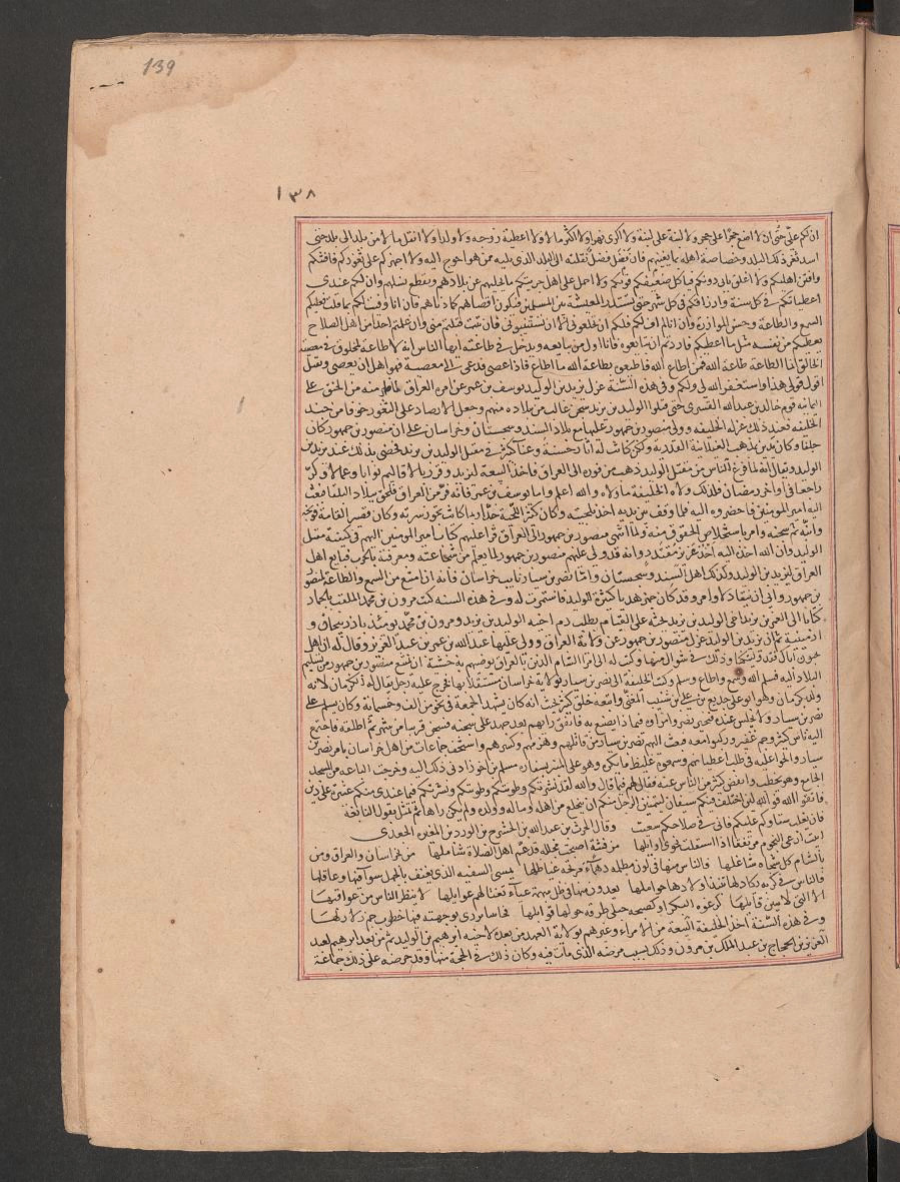 139
١٣٨
ان لكم علىّ حتى ان لا اضع حجرا على حجر ولا لبنة على لبنة ولا اكرى نهرا ولا اكثر مالا ولا اعطيه زوجه ولا ولدا ولا انقل مالا من بلد الى بلد حتى
اسد ثغر ذلك البلد وخصاصة اهله بما يغنيهم فان فضل فضل نقلته الى البلد الذى يليه من هو احوج اليه ولا اجمركم على ثغوركم فافتنكم
وافتن اهليكم ولا اغلق بابى دونكم فياكل ضعيفكم قويكم ولا احمل على اهل جزيتكم ما يجليهم عن بلادهم ويقطع نسلهم وان لكم عندى
اعطياتكم فى كل سنة وارزاقكم فى كل شهر حتى تستدر المعيشة بين المسلمين فيكون اقصاهم كادناهم فان انا وفيت لكم بما قلت فعليكم
السمع والطاعة وحسن الموازرة وان انا لم اف لكم فلكم ان تخلعونى الا ان تستتيبونى فان تبت قبلتم منى وان علمتم احدا من اهل الصلاح
يعطيكم من نفسه مثل ما اعطيكم فاردتم ان تبايعوه فانا اول من بايعه ويدخل فى طاعته ايها الناس انه لا طاعة لمخلوق فى معصية
الخالق انما الطاعة طاعة الله فمن اطاع الله فاطيعوه بطاعة الله ما اطاع فاذا عصى فدعى الى معصية فهو اهل ان يعصى ويقتل
اقول قولى هذا واستغفر الله لى ولكم وفى هذه السنة عزل يزيد بن الوليد يوسف بن عمر عن امرة العراق لما ظهر منه من الحنق على
اليمانيه قوم خالد بن عبد الله القسرى حتى قتلوا الوليد بن يزيد سجن غالب من ببلاده منهم وجعل الارصاد على الثغور خوفا من جند
الخليفه فعند ذلك عزله الخليفه وولى منصور بن جمهور عليها مع بلاد السند وسجستان وخراسان على ان منصور بن جمهور كان
جلفا وكان يدين بمذهب الغيلانية القدرية ولكن كانت له اثار حسنة وعنا كثير فى مقتل الوليد بن يزيد فحظى بذلك عند يزيد بن
الوليد ويقال انه لما فرغ الناس من مقتل الوليد ذهب من فوره الى العراق فاخذ البيعة ليزيد وقرر بالاقاليم نوابا وعمالا وكر
راجعا فى اواخر رمضان فلذلك ولاه الخليفة ما ولاه والله اعلم واما يوسف بن عمر فانه فر من العراق فلحق ببلاد البلقا فبعث
اليه امير المومنين فاحضروه اليه فلما وقف بين يديه اخذ بلحيته وكان كبير اللحية جدا ربما كانت تجاوز سرته وكان قصير القامة فوبخه
وانبه ثم سجنه وامر باستخلاص الحقوق منه ولما انتهى منصور بن جمهور الى العراق قرأ عليهم كتاب امير المومنين اليهم فى كيفية مقتل
الوليد وان الله اخذه اليه اخذ عزيز مقتدر وانه قد ولى عليهم منصور بن جمهور لما يعلم من شجاعته ومعرفته بالحرب فبايع اهل
العراق ليزيد بن الوليد وكذلك اهل السند وسجستان واما نصر بن سيار نايب خراسان فانه امتنع من السمع والطاعة لمنصور
بن جمهور وابى ان ينقاد لاوامره وقد كان جهز هدايا كثيرة للوليد فاستمرت له وفى هذه السنه كتب مرون بن محمد الملقب بالحمار
كتابا الى الغمر بن يزيد اخى الوليد بن يزيد يحثه على القيام بطلب دم اخيه الوليد بن يزيد ومرون بن محمد يومئذ باذربيجان و
ارمينية ثم ان يزيد بن الوليد عزل منصور بن جمهور عن ولاية العراق وولى عليها عبد الله بن عمر بن عبد العزيز وقال له ان اهلها
يحبون اباك فقد وليتكها وذلك فى شوال منها وكتب له الى امرا الشام الذين بالعراق يوصيهم به خشية ان يمتنع منصور بن جمهور من تسليم
البلاد اليه فسلم اليه وسمع واطاع وسلم وكتب الخليفة الى نصر بن سيار بولاية خراسان مستقلا بها فخرج عليه رجل يقال له الكرمانى لانه
ولد بكرمان وهو ابو على جديع بن على بن شبيب المعنى واتبعه خلق كثير بحيث انه كان يشهد الجمعة فى نحو من الف وخمسماية وكان يسلم على
نصر بن سيار ولا يجلس عنده فتحير نصر وامراوه فيما ذا يصنع به فاتفق رايهم بعد جهد على سجنه فسجن قريبا من شهر ثم اطلقه فاجتمع
اليه ناس كثير وجم غفير وركبوا معه فبعث اليهم نصر بن سيار من قاتلهم وهزمهم وكسرهم واستخف جماعات من اهل خراسان بامر نصر بن
سيار والحوا عليه فى طلب اعطياتهم واسمعوه غليظ ما يكره وهو على المنبر بسفارة سلم بن احوز ادى ذلك اليه وخرجت الباعه من المسجد
الجامع وهو يخطب وانفض كثير من الناس عنه فقال لهم فيما قال والله لقد نشرتكم وطويتكم وطويتكم ونشرتكم فما عندى منكم عشرة على دين
فاتقوا الله فوالله لئن اختلف فيكم سيفان ليتمنين الرجل منكم ان ينخلع من اهله وماله وولده ولم يكن راها ثم تمثل بقول النابغة
فان يغلب شقاوكم عليكم فانى فى صلاحكم سعيت وقال الحرث بن عبد الله بن الحشرج بن الورد بن المغيره الجعدى
ابيت ارعى النجوم مرتفقا اذا استقلت تجرى اوايلها من فتنة اصبحت مجللة قد عم اهل الصلاة شاملها من بخراسان والعراق ومن
بالشام كل شجاه شاغلها فالناس منها فى لون مظلمة دهماء ملتجة غياطلها يمسى السفيه الذى يعنف بالجهل سوا فيها وعاقلها
فالناس فى كربة يكاد لها تنبذ اولادها حواملها يغدون منها فى ظل مبهمة عمياء تغتالهم غوايلها لا ينظر الناس من عواقبها
الا التى لا يبين قايلها كرغوة البكر او كصيحة حبلى طرقت حولها قوابلها فجا فينا ازرى بوجهته فيها خطوب حمر زلازلها
وفى هذه السنة اخذ الخليفة البيعة من الامراء وغيرهم بولاية العهد من بعده لاخيه ابرهيم بن الوليد ثم من بعد ابرهيم لعبد
العزيز بن الحجاج بن عبد الملك بن مرون وذلك بسبب مرضه الذى مات فيه وكان ذلك فى الحجة منها وقد حرضه على ذلك جماعة